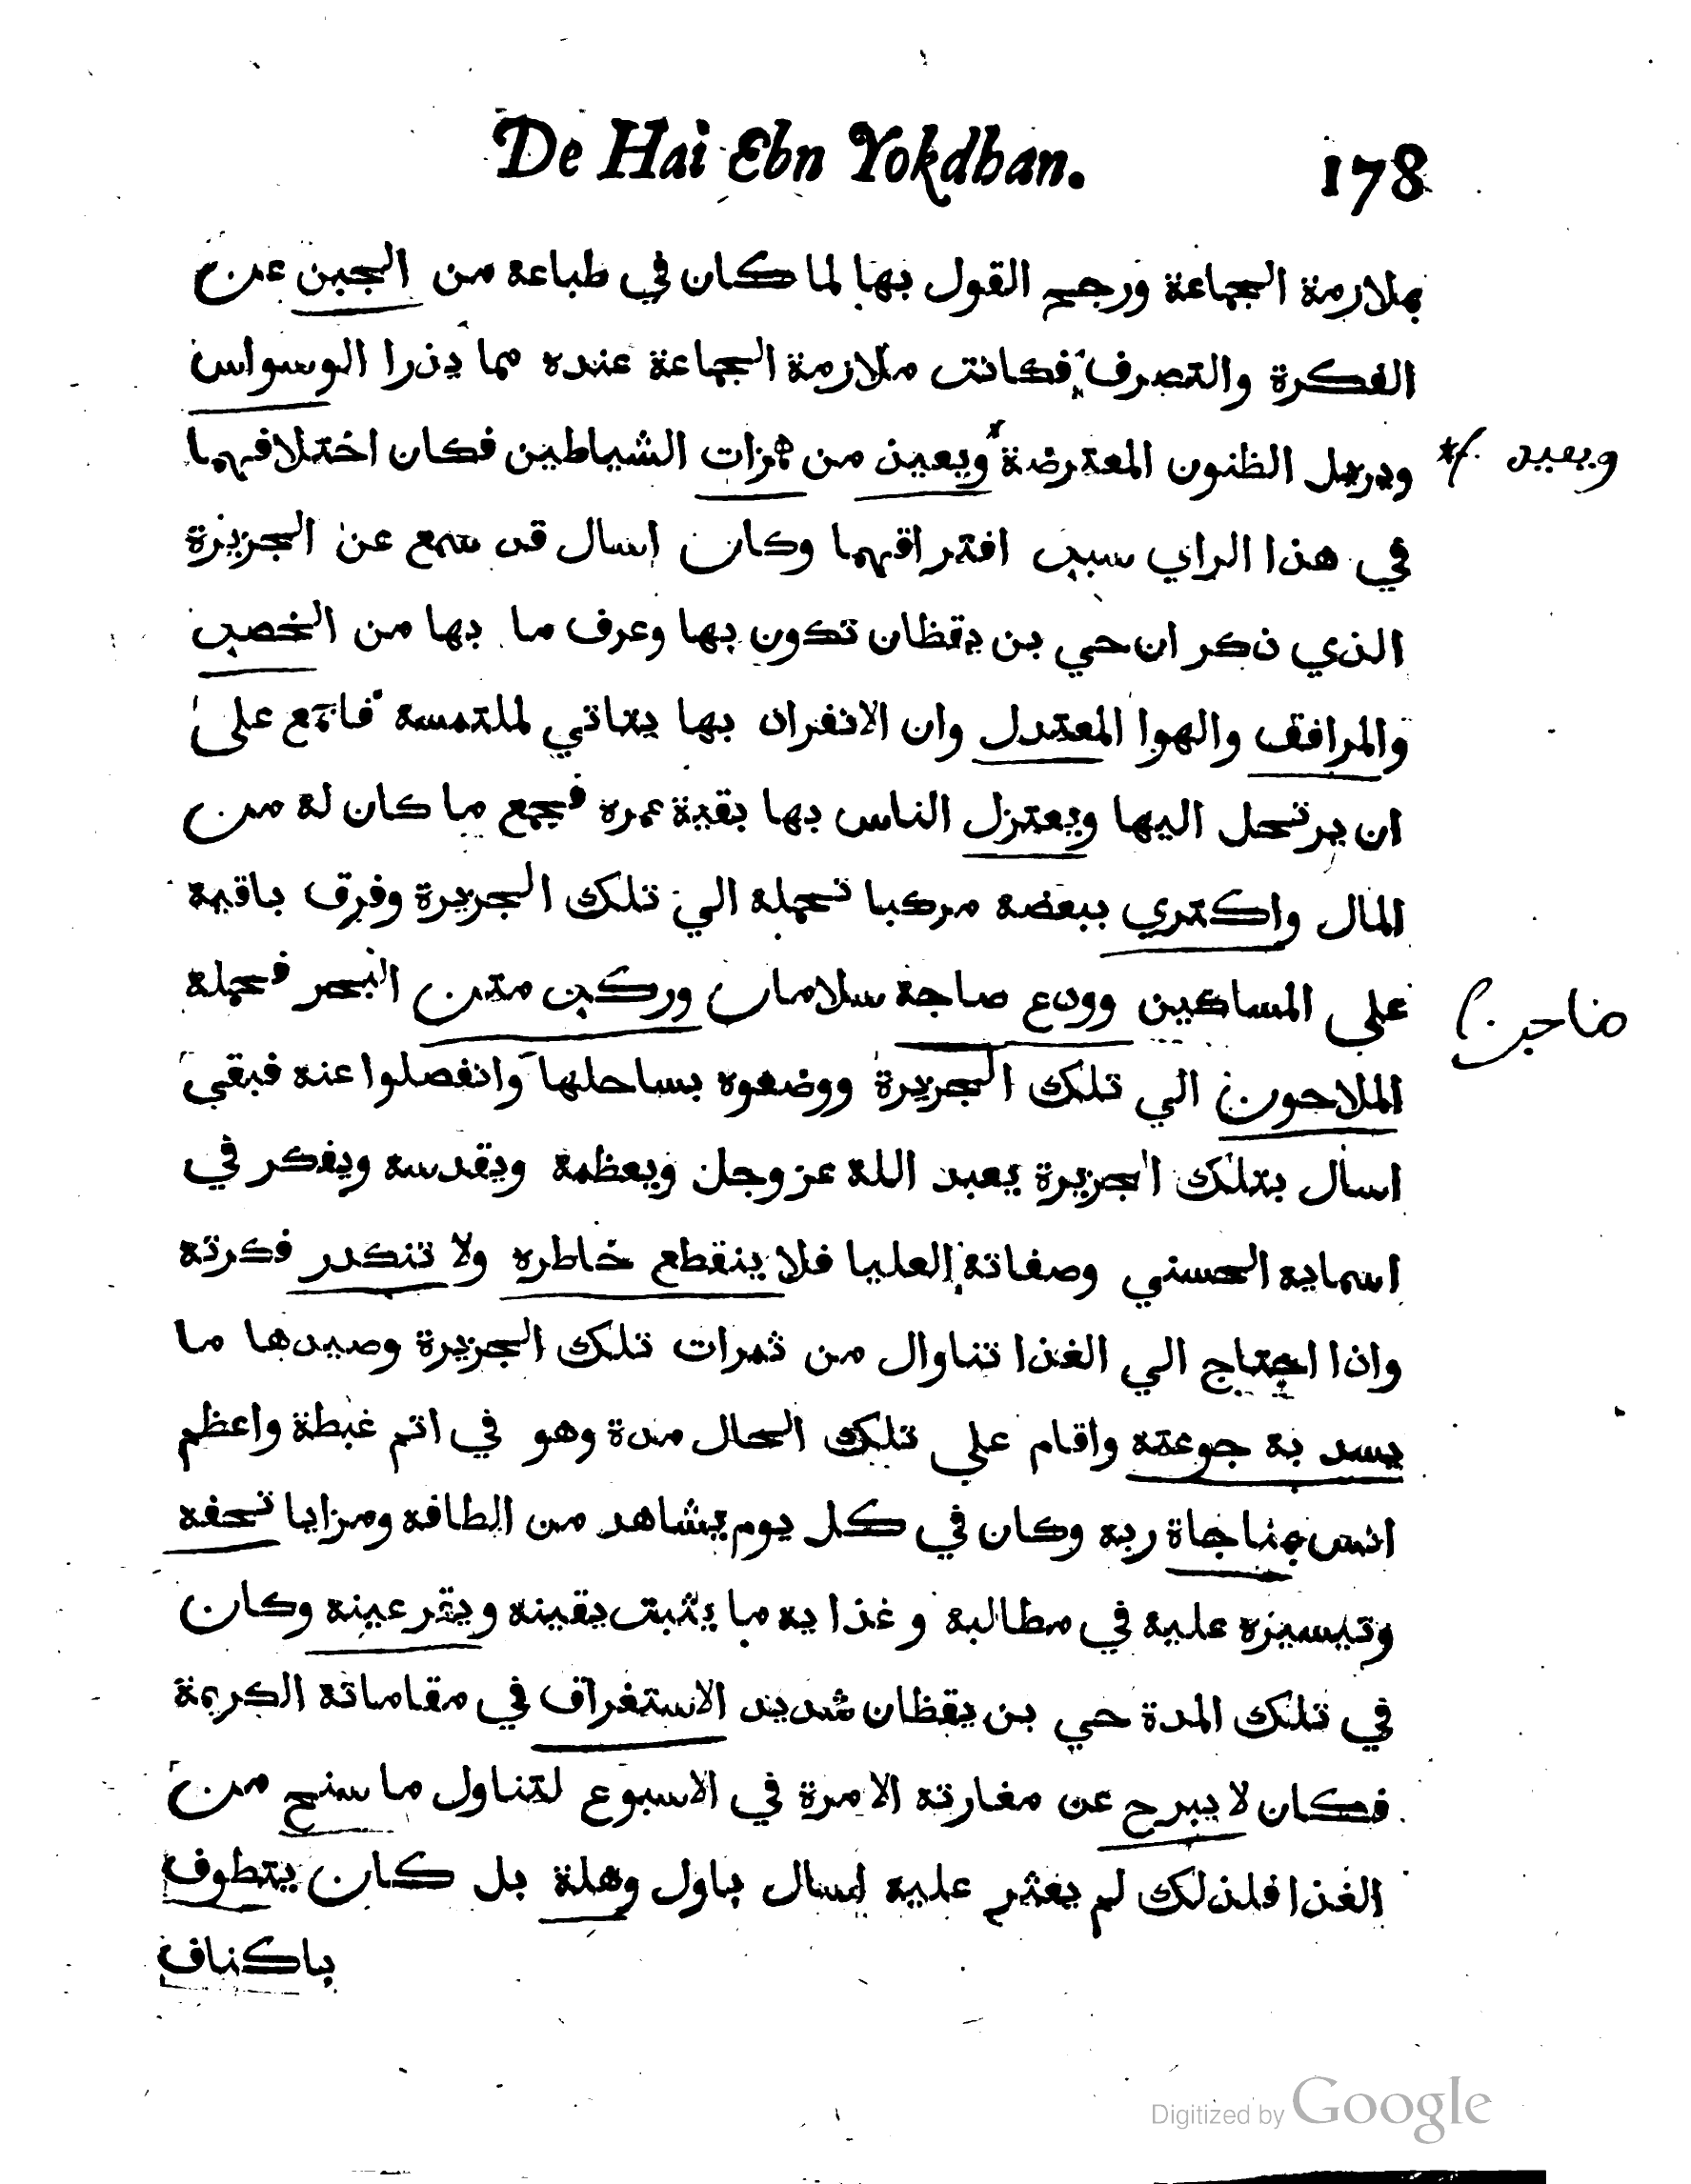 De Hai Ebn Yokdhan. 178
بملازمة الجماعة ورجح القول بها لما كان في طباعة من الجبن عن
الفكرة والتصرف فكانت ملازمة الجماعة عنده مما يذرا الوسواس
ويزيل الظنون المعترضة ويعيذ من همزات الشياطين فكان اختلافهما
ويعيد
في هذا الراي سبب افتراقهما وكان اسال قد سمع عن الجزيرة
الذي ذكر ان حي بن يقظان تكون بها وعرف ما بها من الخصب
والمرافق والهوا المعتدل وان الانفراد بها يتاتي لملتمسة فازمع على
ان يرتحل اليها ويعتزل الناس بها بقية عمره فجمع ما كان له من
المال واكتري ببعضة مركبا تحملة الي تلك الجزيرة وفرق باقية
علي المساكين وودع صاحبة سلامان وركب متن البحر فحملة
الملاحون الي تلك الجزيرة ووضعوه بساحلها وانفصلوا عنه فبقي
اسال بتلك الجزيرة يعبد اللة عز وجل ويعظمة ويقدسة ويفكر في
اسمايه الحسني وصفاتة العليا فلا ينقطع خاطره ولا تتكدر فكرته
واذا احتاج الي الغذا تناوال من ثمرات تلك الجزيرة وصيدها ما
يسد به جوعته واقام علي تلك الحال مدة وهو في اتم غبطة واعظم
انس بمناجاة ربة وكان في كل يوم يشاهد من الطافه ومزايا تحفه
وتيسيره علية في مطالبة وغذايه ما يثبت يقينه ويقر عينه وكان
في تلك المدة حي بن يقظان شديد الاستغراف في مقاماته الكريمة
فكان لا يبرح عن مغارته الا مرة في الاسبوع لتناول ما سنح من
الغذا فلذلك لم يعثر علية اسال باول وهلة بل كان يتطوف
باكناف
Digitized by Google